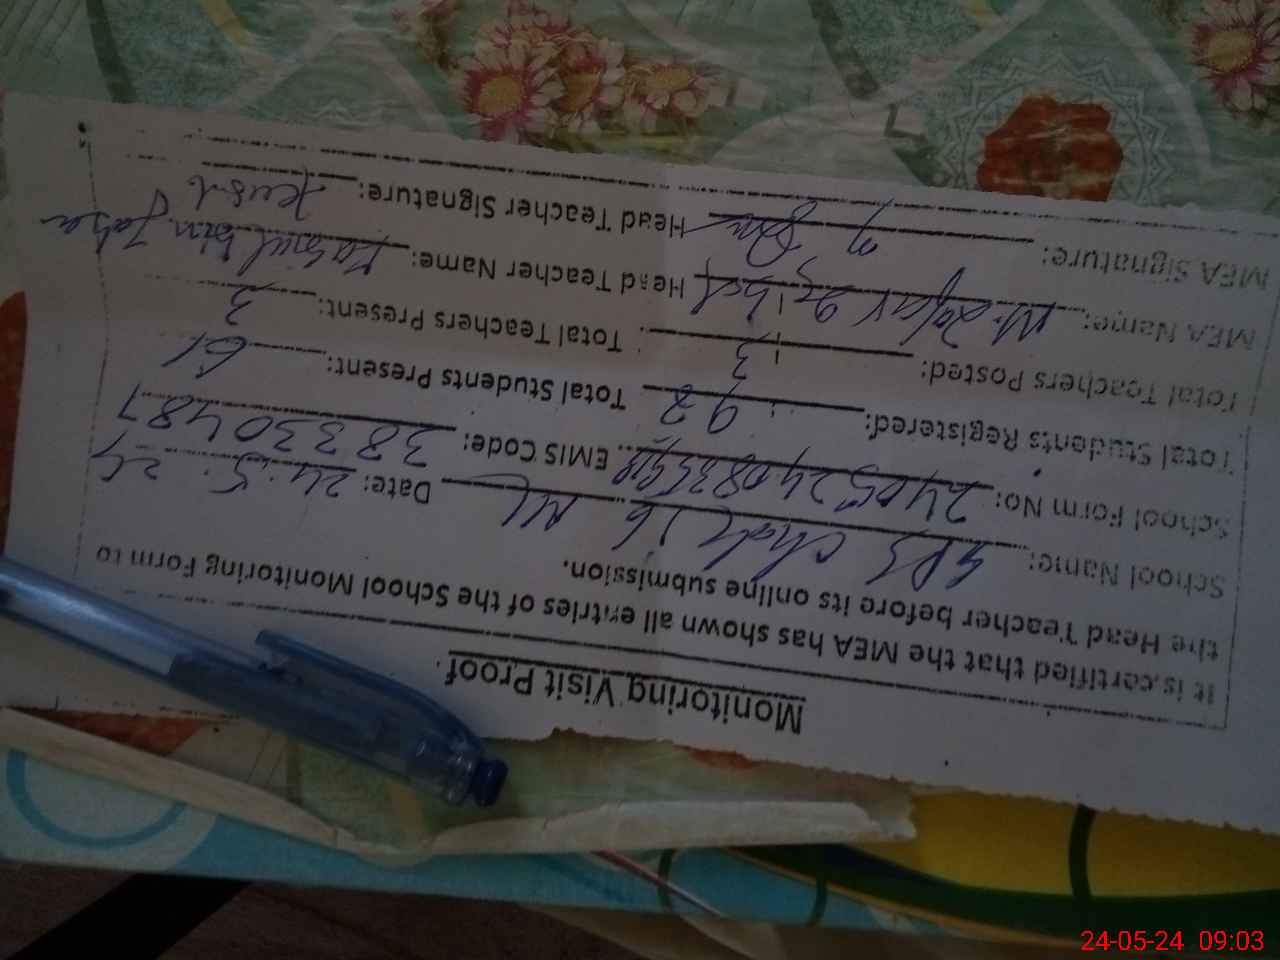 Monitoring Visit Proof
It is certified that the MEA has shown all entries of the School Monitoring Form to
the Head Teacher before its online submission.
School Name: GPS Date: 24.5.24
School Form No: EMIS Code: 38330487
Total Students Registered: 92 Total Students Present: 61
Total Teachers Posted: 3 Total Teachers Present: 3
MEA Name: Head Teacher Name:
MEA Signature: Head Teacher Signature:
24-05-24 09:03